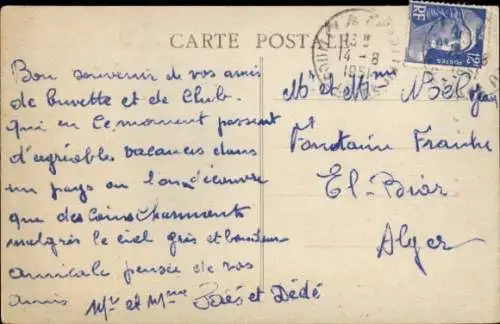 CARTE POSTALE
13 H
14 - 8
1951
RF
12F
POSTES
Bon souvenir de vos amis
de buvette et de Club.
qui en ce moment passent
d'agréables vacances dans
un pays ou l'on découvre
que des coins charmants
malgrès le ciel gris et
amicale pensée de vos
amis Mr et Mme et Dédé
Mr et Mme Noël
Fontaine Fraiche
El-Biar
Alger